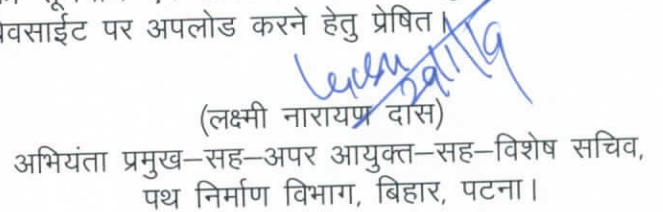 वेवसाईट पर अपलोड करने हेतु प्रेषित।
29/1/19
(लक्ष्मी नारायण दास)
अभियंता प्रमुख–सह–अपर आयुक्त–सह–विशेष सचिव,
पथ निर्माण विभाग, बिहार, पटना।